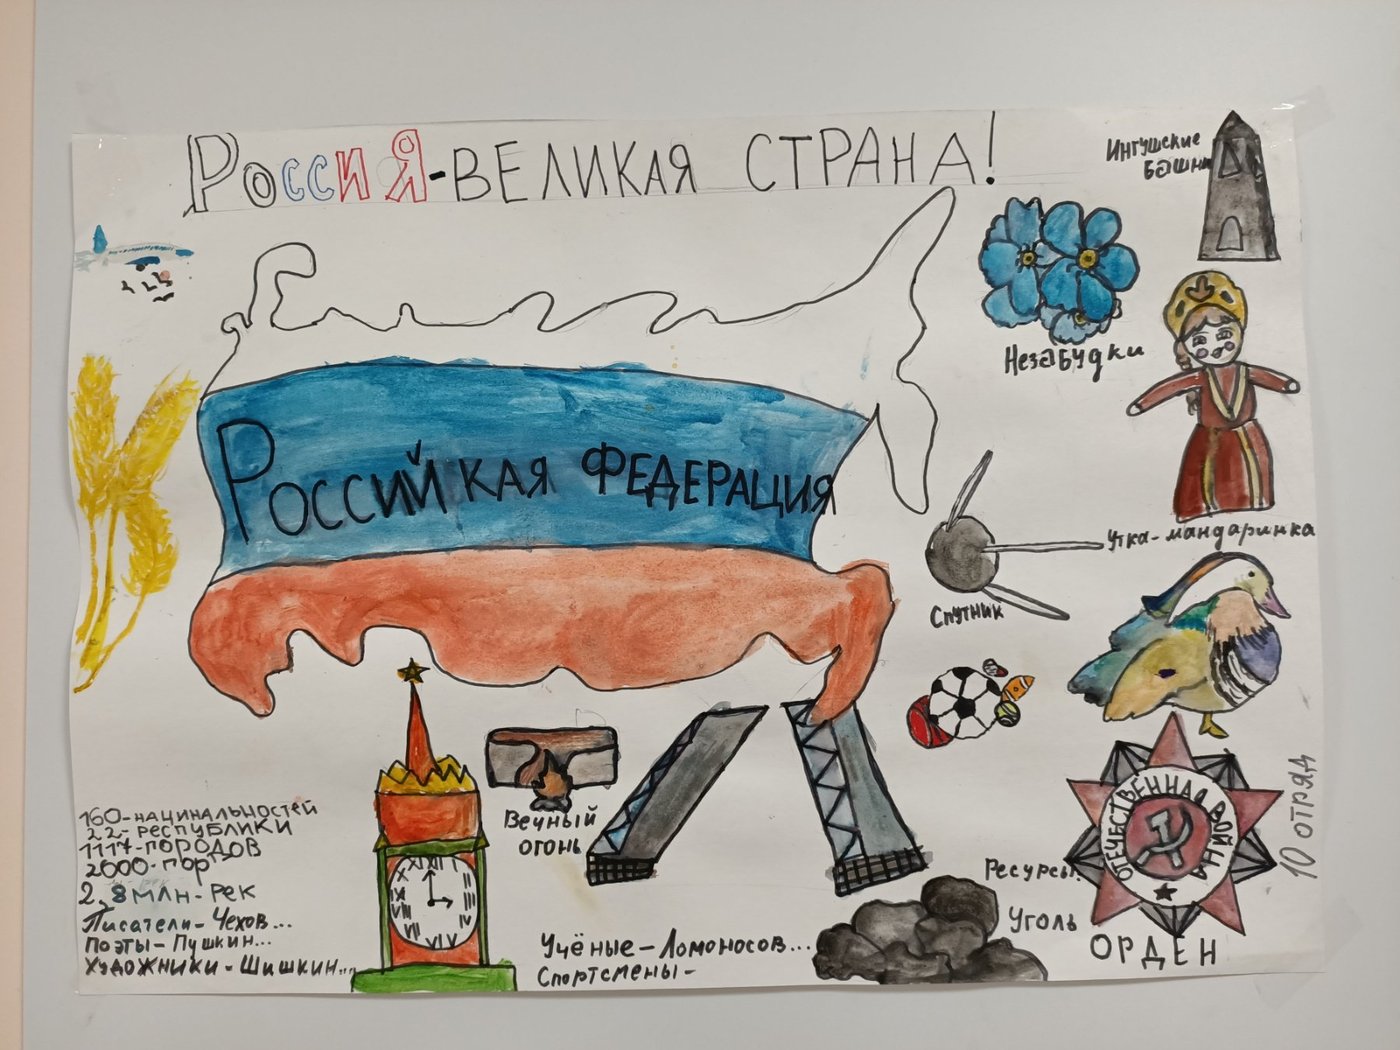 РОССИЯ-ВЕЛИКАЯ СТРАНА!
Ингушские
башни
Незабудки
РОССИЙКАЯ ФЕДЕРАЦИЯ
Утка-мандаринка
Спутник
Вечный
огонь
160-нацинальностей
22-республики
1117-городов
2000-гор
2,8 млн-рек
Писатели-Чехов...
Поэты-Пушкин...
Художники-Шишкин...
Учёные-Ломоносов...
Спортсмены-
Ресурсы.
Уголь
ОТЕЧЕСТВЕННАЯ ВОЙНА
ОРДЕН
10 отряд
XII